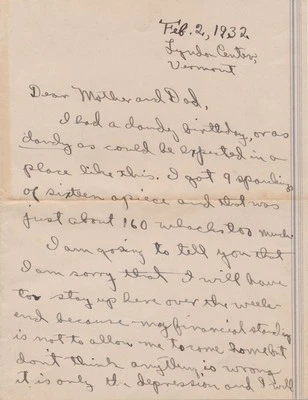 Feb. 2, 1932
Lyndon Center,
Vermont
Dear Mother and Dad,
I had a dandy birthday, or as
dandy as could be expected in a
place like this. I got 9 spankings
of sixteen apiece and that was
just about 160 whacks too much.
I am going to tell you that
I am sorry that I will have
to stay up here over the week-
end because my financial standing
is not to allow me to come home but
don't think anything is wrong
it is only the depression and I will